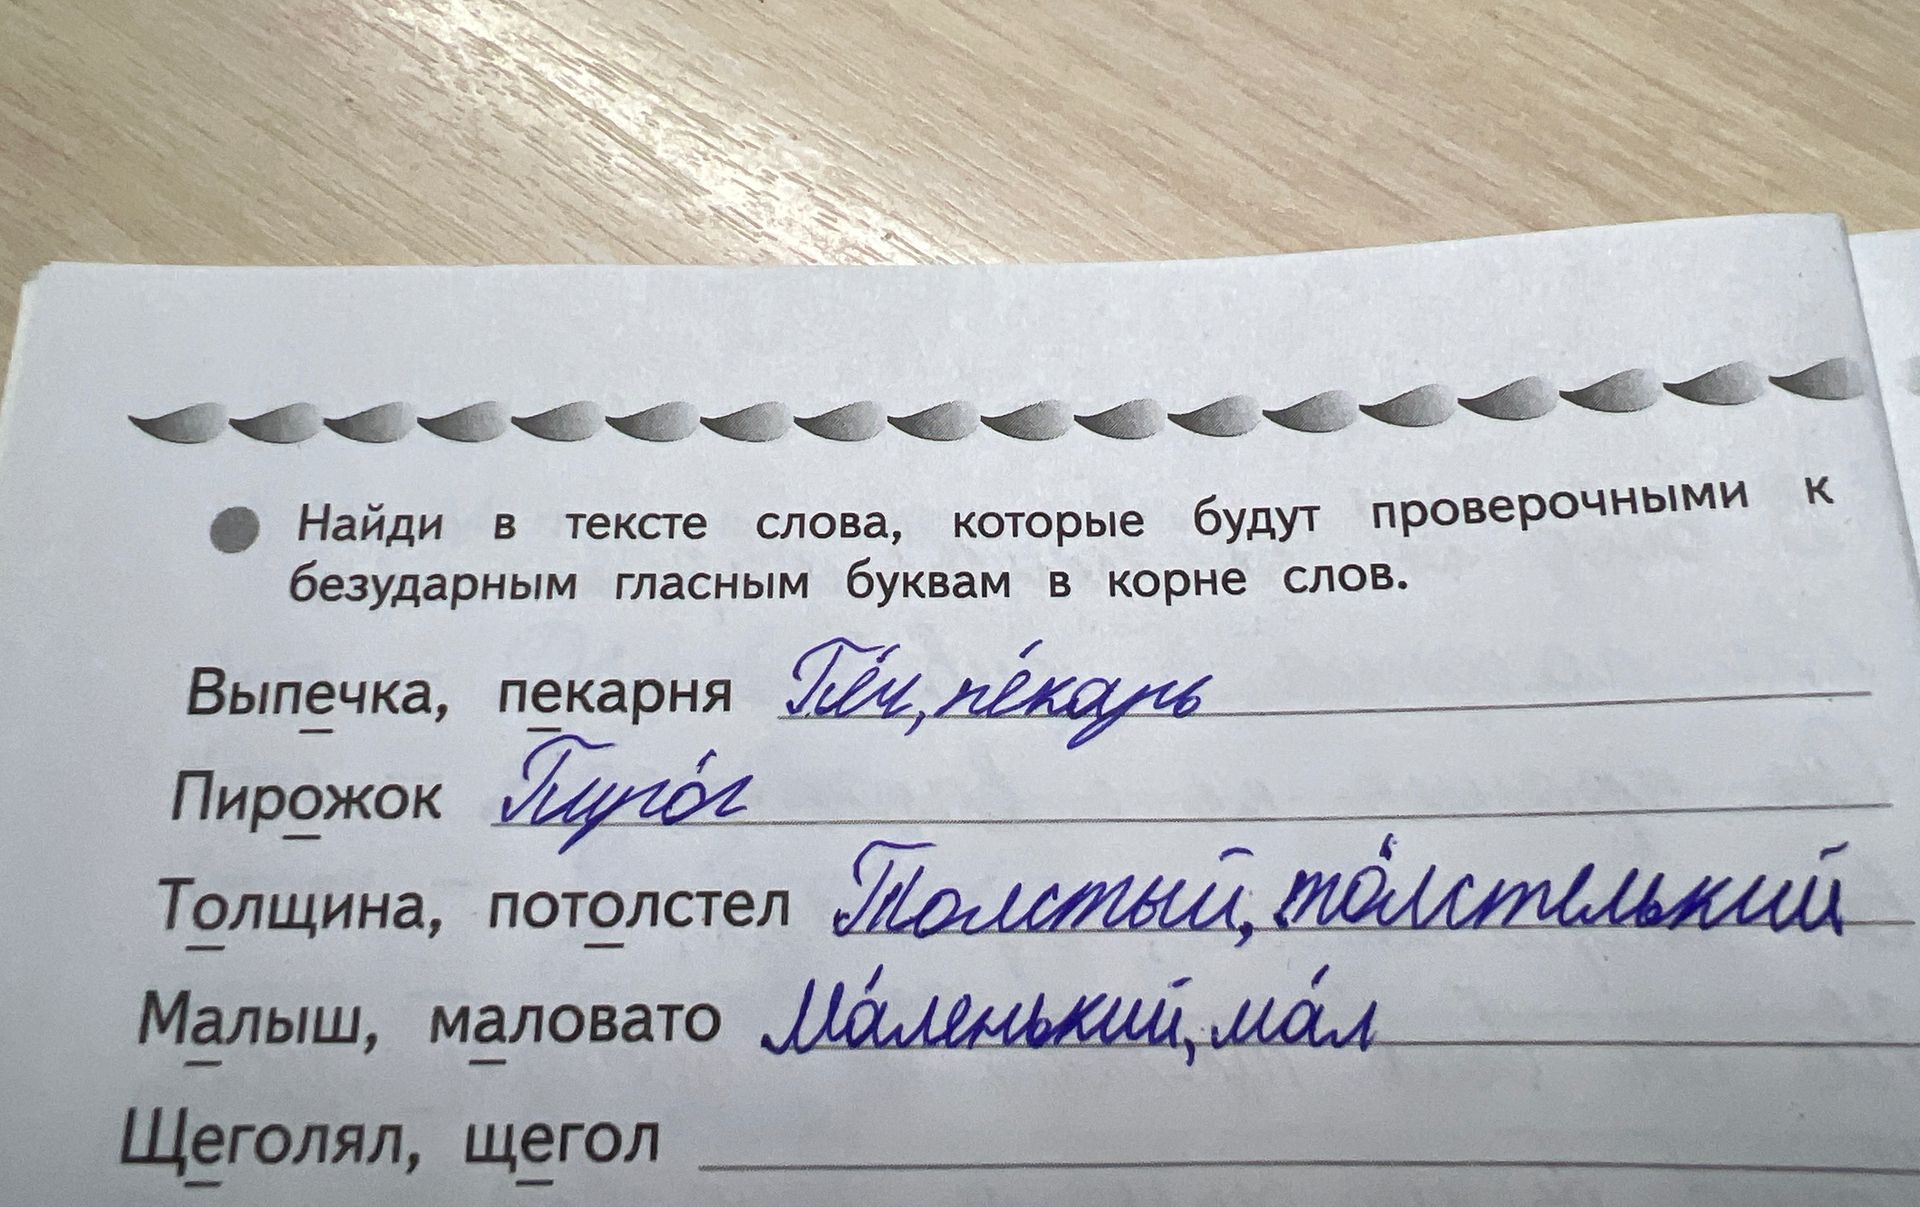 Найди в тексте слова, которые будут проверочными к
безударным гласным буквам в корне слов.
Выпечка, пекарня Пе́ч, пе́карь
Пирожок Пиро́г
Толщина, потолстел Толстый, то́лстелький
Малыш, маловато Ма́ленький, ма́л
Щеголял, щегол